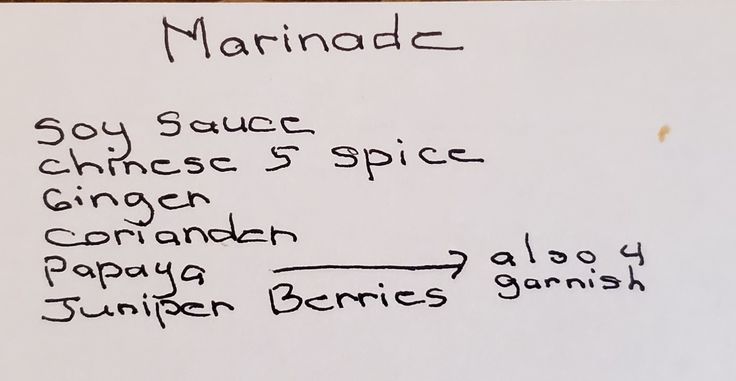 Marinade
Soy Sauce
Chinese 5 Spice
Ginger
Coriander
Papaya → also 4
garnish
Juniper Berries